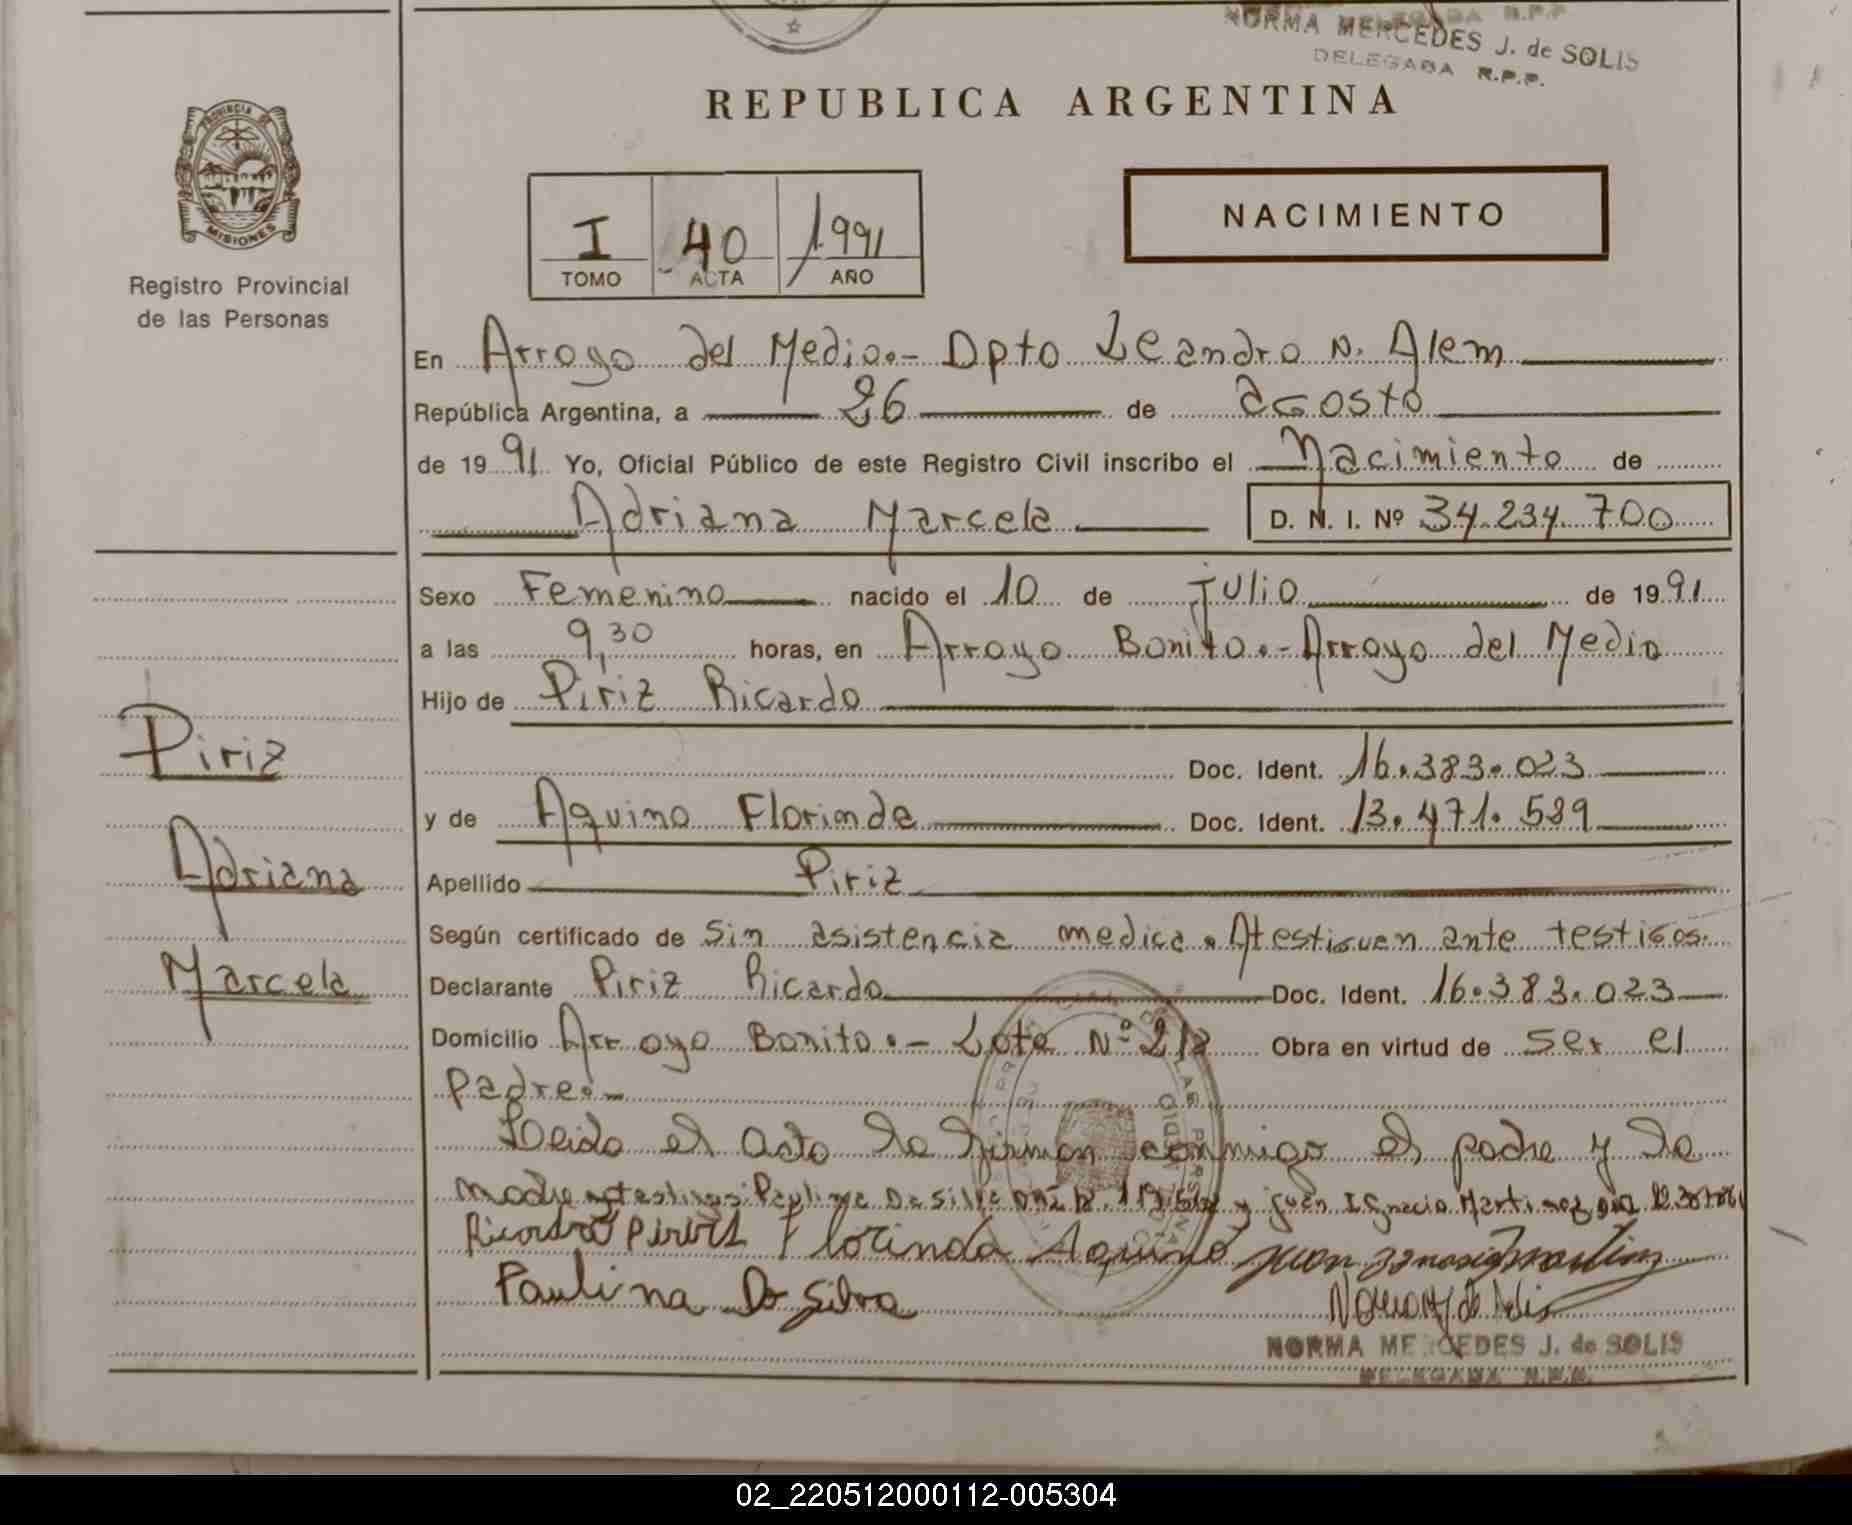 NORMA MERCEDES J. de SOLIS
DELEGADA R.P.P.
REPUBLICA ARGENTINA
PROVINCIA DE
MISIONES
Registro Provincial
de las Personas
I 40 1991
TOMO ACTA AÑO
NACIMIENTO
En Arroyo del Medio.- Dpto Leandro N. Alem
República Argentina, a 26 de agosto
de 1991 Yo, Oficial Público de este Registro Civil inscribo el Nacimiento de
Adriana Marcela D. N. I. Nº 34.234.700
Sexo Femenino nacido el 10 de julio de 1991
a las 9,30 horas, en Arroyo Bonito.- Arroyo del Medio
Hijo de Piriz Ricardo
Doc. Ident. 16.383.023
y de Aquino Florinda Doc. Ident. 13.471.589
Apellido Piriz
Según certificado de Sin asistencia medica. Atestiguan ante testigos.
Declarante Piriz Ricardo Doc. Ident. 16.383.023
Domicilio Arroyo Bonito.- Lote Nº 212 Obra en virtud de ser el
padre.-
Leida el acta la firman conmigo el padre y la
madre testigos: Paulina Da Silva y Juan Ignacio Martinez
Ricardo Piriz Florinda Aquino
Paulina Da Silva
NORMA MERCEDES J. de SOLIS
DELEGADA R.P.P.
Piriz
Adriana
Marcela
02_220512000112-005304